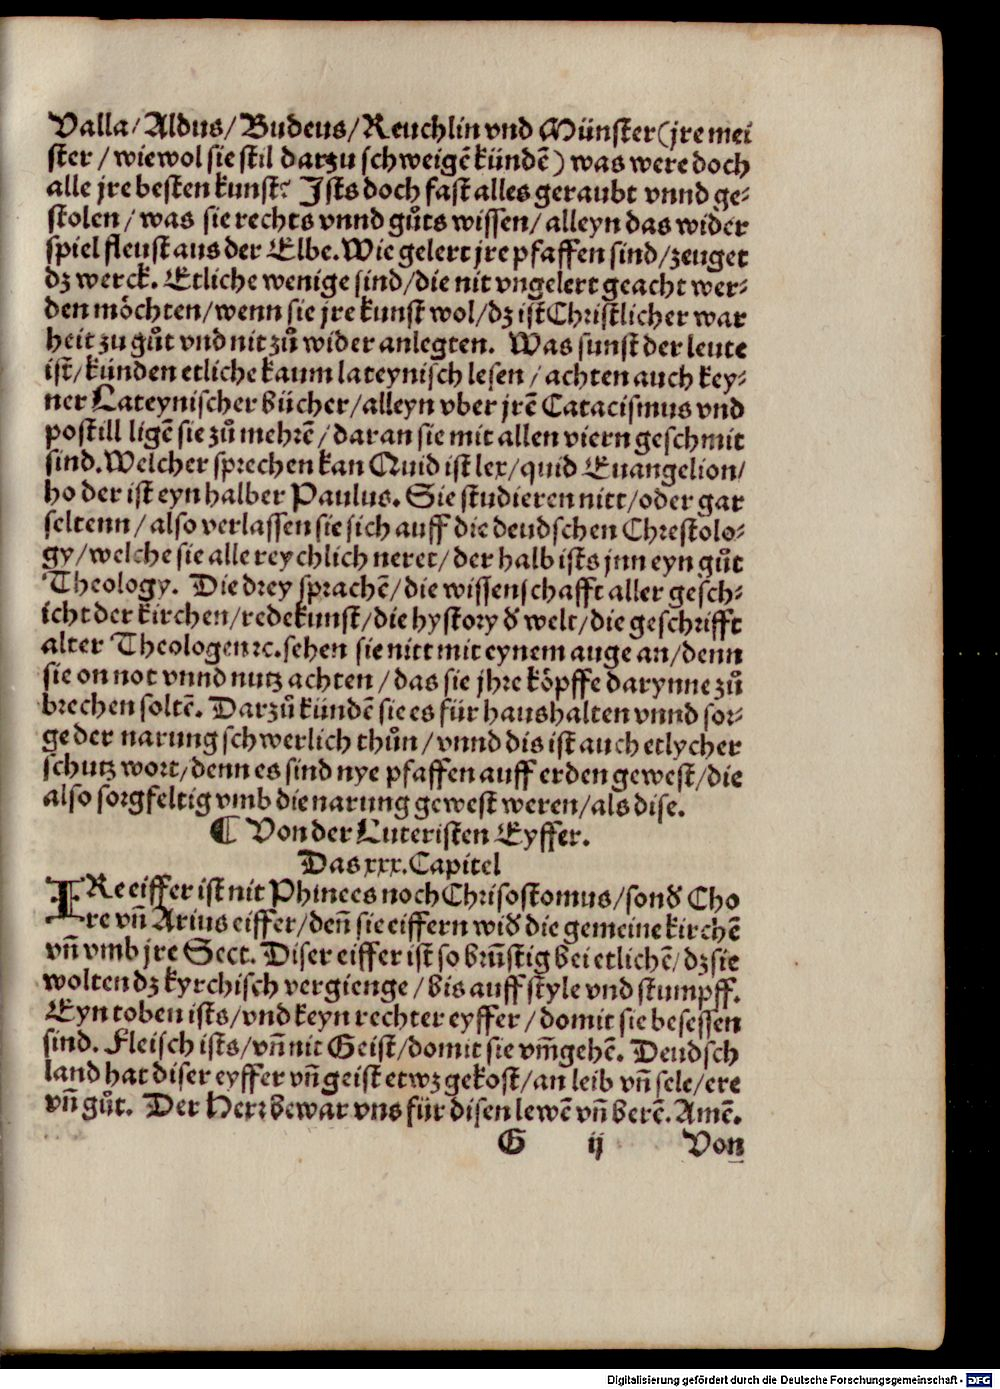 Valla/ Aldus/ Budeus/ Reuchlin vnd Münster (jre mei
ster / wiewol sie stil darzu schweigē kündē) was were doch
alle jre besten kunst? Ists doch fast alles geraubt vnnd ge⸗
stolen / was sie rechts vnnd gůts wissen/ alleyn das wider
spiel fleust aus der Elbe. Wie gelert jre pfaffen sind/ zeuget
dz werck. Etliche wenige sind/ die nit vngelert geacht wer⸗
den möchten/ wenn sie jre kunst wol/ dz ist Christlicher war
heit zu gůt vnd nit zů wider anlegten. Was sunst der leute
ist/ künden etliche kaum lateynisch lesen / achten auch key⸗
ner Lateynischer bücher/ alleyn vber jrē Catacismus vnd
postill ligē sie zů mehrē / daran sie mit allen viern geschmit
sind. Welcher sprechen kan Quid ist lex/ quid Euangelion/
ho der ist eyn halber Paulus. Sie studieren nitt/ oder gar
seltenn / also verlassen sie sich auff die deudschen Chrestolo⸗
gy/ welche sie alle reychlich neret/ der halb ists jnn eyn gůt
Theology. Die drey sprachē/ die wissenschafft aller gesch⸗
icht der kirchen/ redekunst/ die hystory ð welt/ die geschrifft
alter Theologen ⁊c. sehen sie nitt mit eynem auge an/ denn
sie on not vnnd nutz achten / das sie jhre köpffe darynne zů
brechen soltē. Darzů kündē sie es für haushalten vnnd sor⸗
ge der narung schwerlich thůn / vnnd dis ist auch etlycher
schutz wort/ denn es sind nye pfaffen auff erden gewest/ die
also sorgfeltig vmb die narung gewest weren/ als dise.
¶ Von der Luteristen Eyffer.
Das xxx. Capitel
IRe eiffer ist nit Phinees noch Chrisostomus/ sonð Cho
re vñ Arius eiffer/ deñ sie eiffern wið die gemeine kirchē
vñ vmb jre Sect. Diser eiffer ist so brũstig bei etlichē/ dz sie
wolten dz kyrchisch vergienge / bis auff style vnd stumpff.
Eyn toben ists/ vnd keyn rechter eyffer / domit sie besessen
sind. Fleisch ists/ vñ nit Geist/ domit sie vm̃gehē. Deudsch
land hat diser eyffer vñ geist etwz gekost/ an leib vñ sele/ ere
vñ gůt. Der Herr bewar vns für disen lewē vñ berē. Amē.
G ij Von
Digitalisierung gefördert durch die Deutsche Forschungsgemeinschaft - DFG